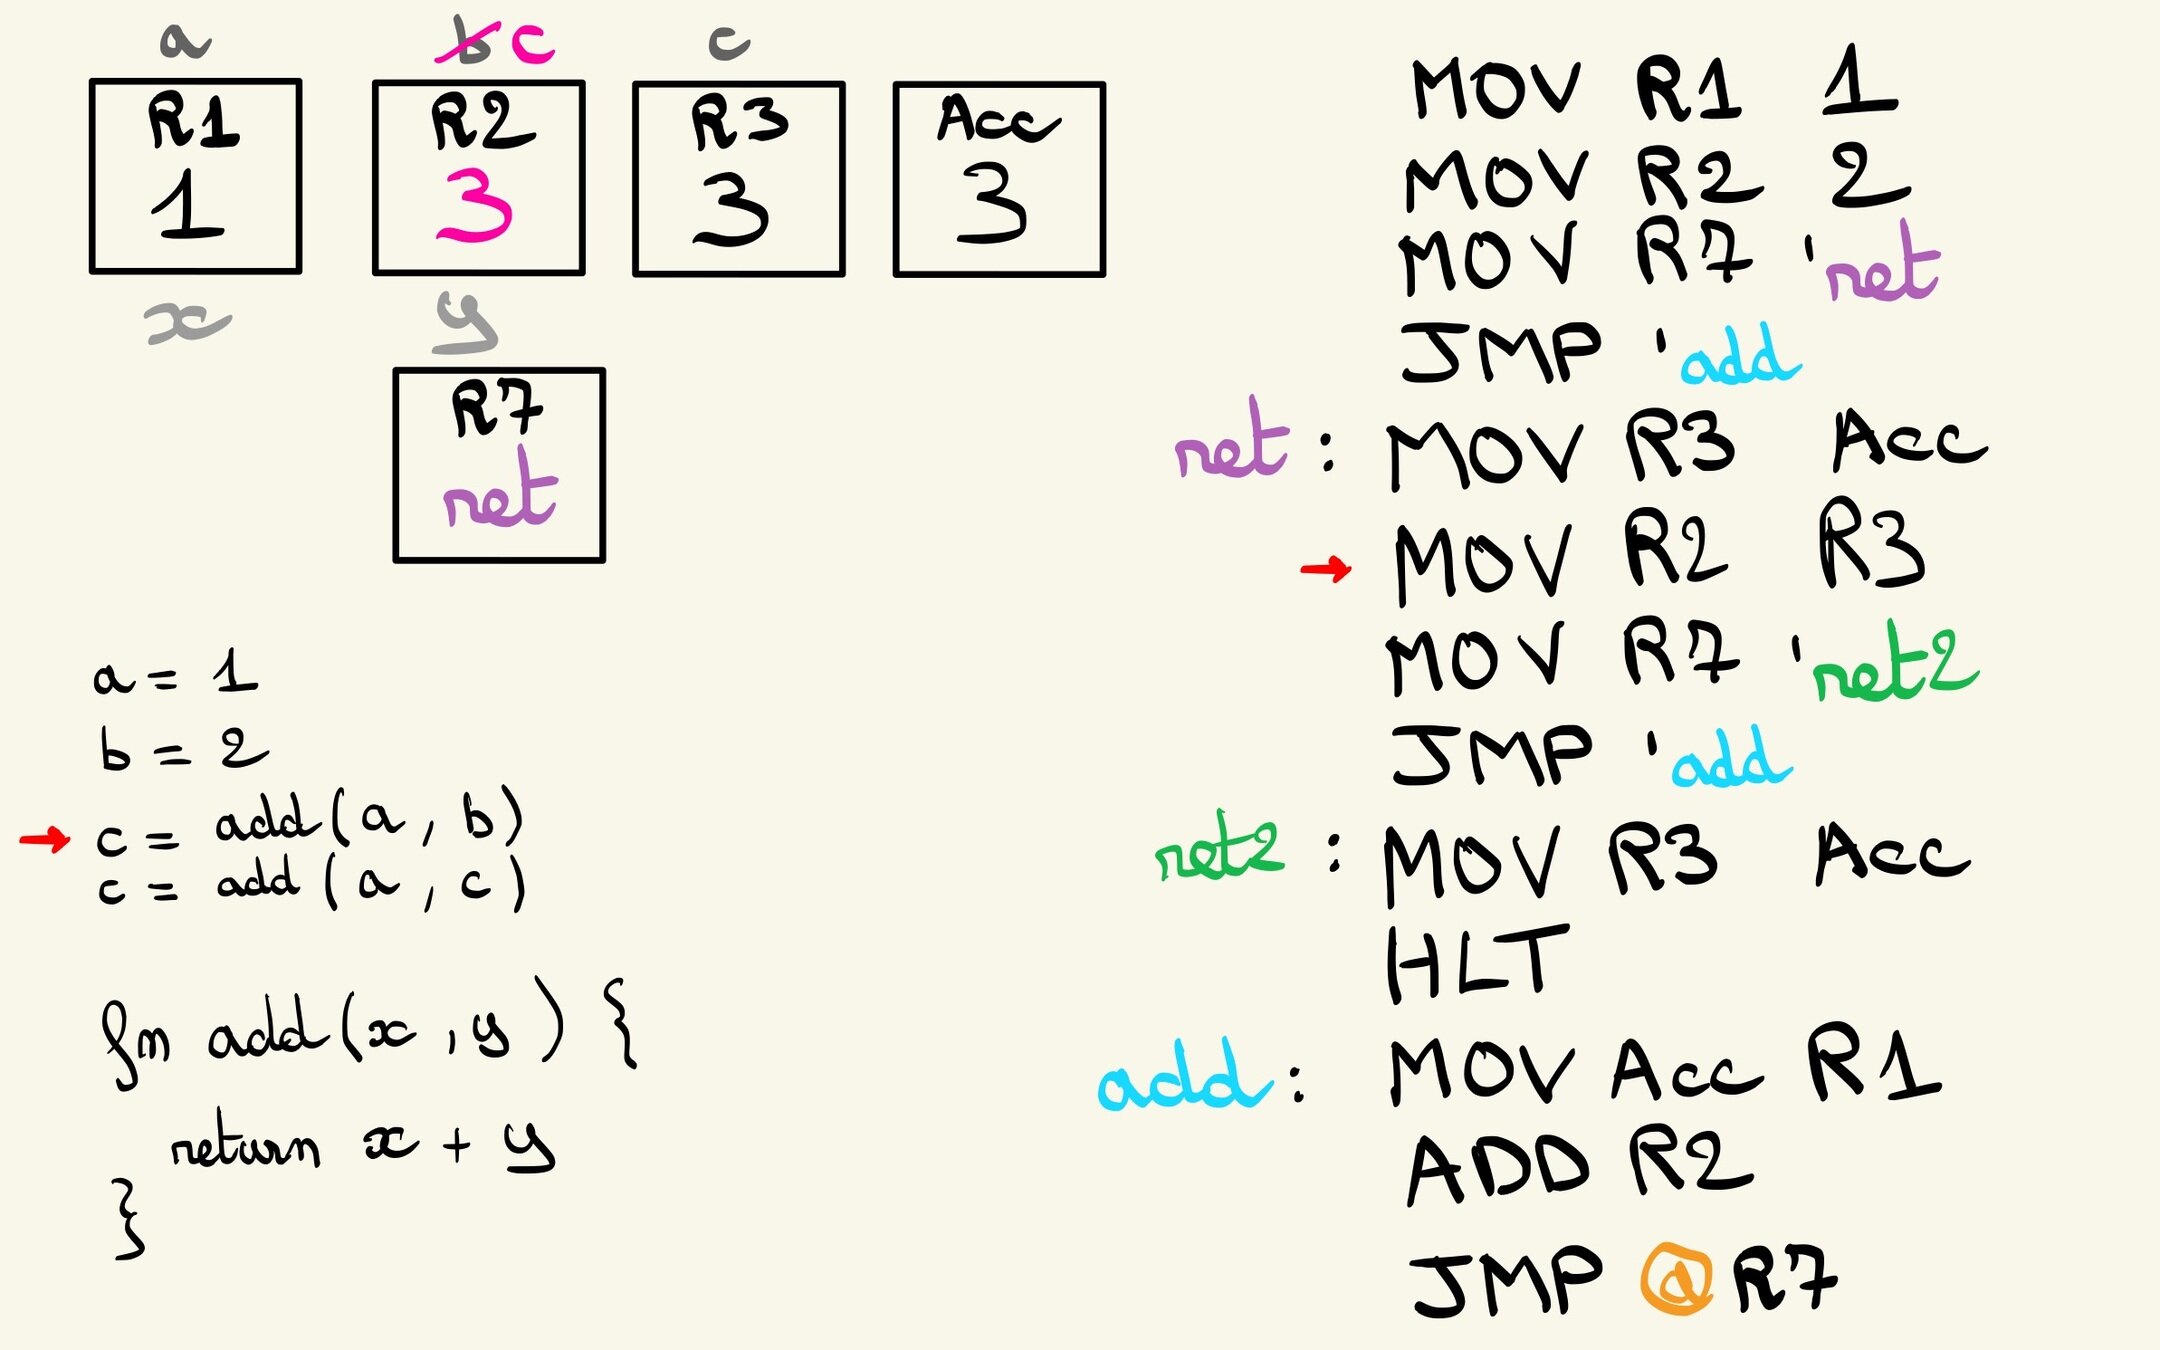 a b c c
R1 R2 R3 Acc
1 3 3 3
x y
R7
ret
a = 1
b = 2
→ c = add(a, b)
c = add(a, c)
fn add(x, y) {
return x + y
}
MOV R1 1
MOV R2 2
MOV R7 'ret
JMP 'add
ret: MOV R3 Acc
→ MOV R2 R3
MOV R7 'ret2
JMP 'add
ret2: MOV R3 Acc
HLT
add: MOV Acc R1
ADD R2
JMP @R7